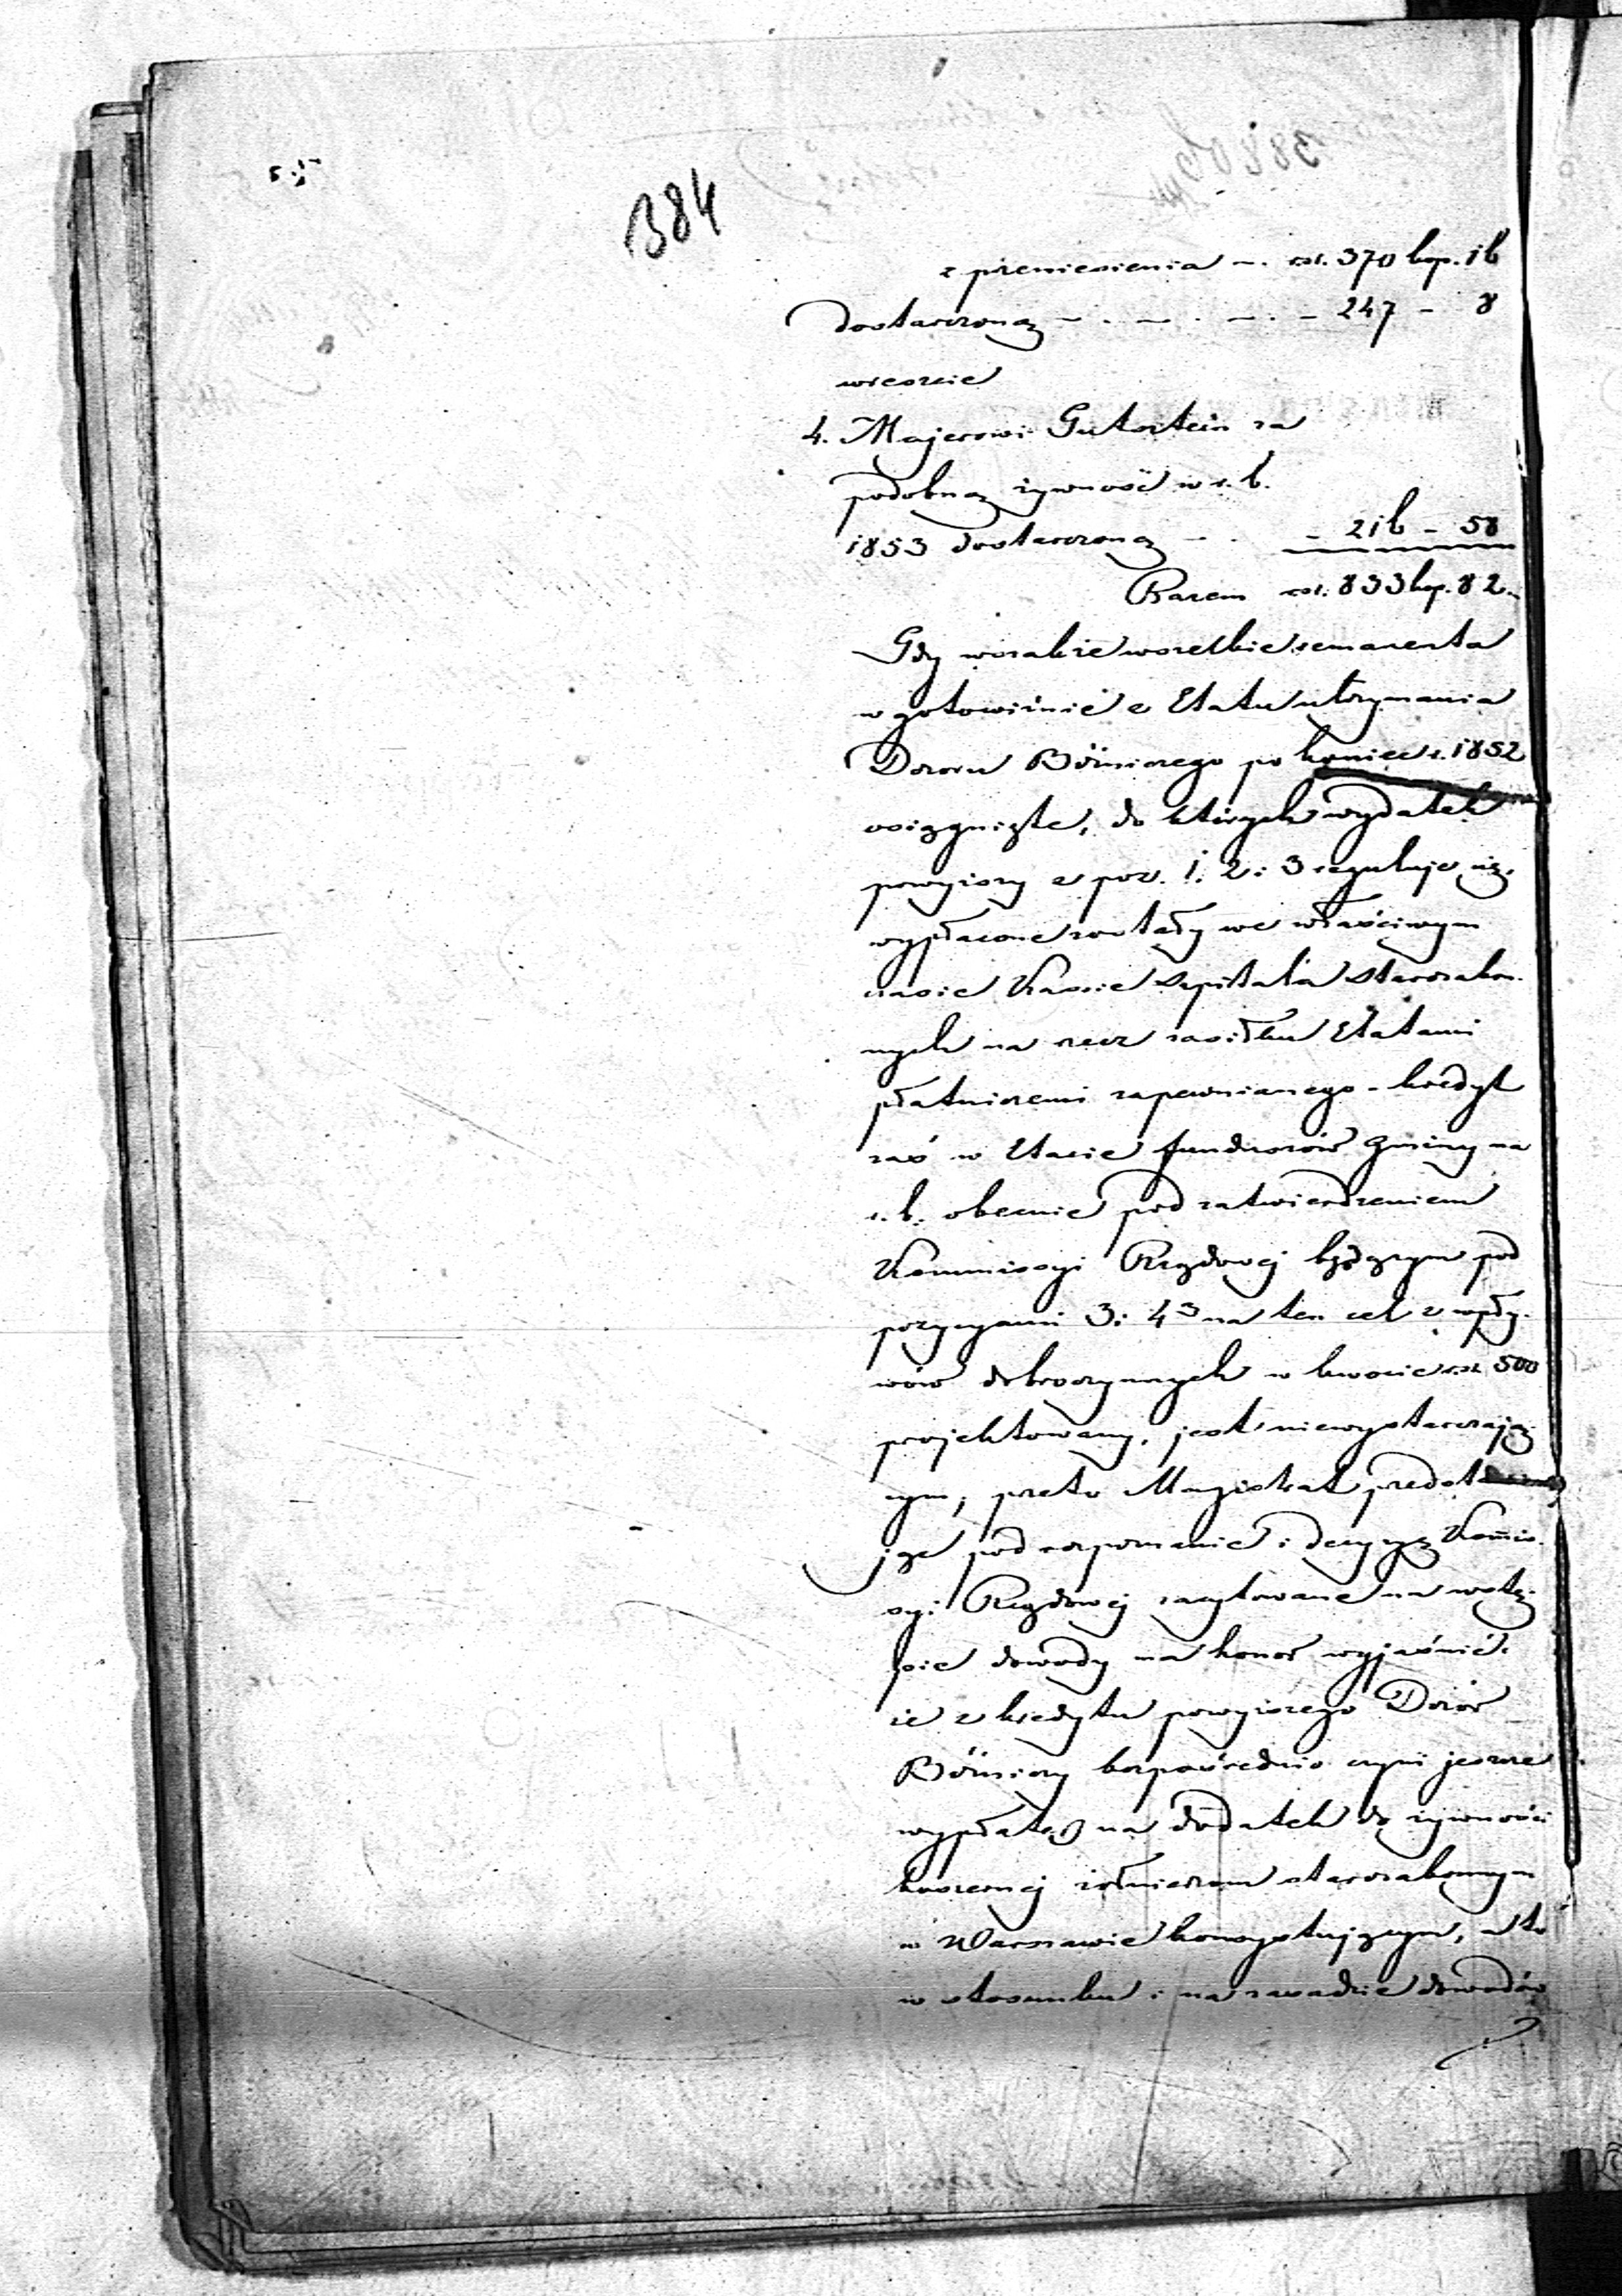 384
z przeniesienia — rsr. 370 kop. 16
dostarczoną — . — . — . — 247 — 8
wreszcie
4. Majerowi Gutsztein za
podobną żywność w r. b.
1853 dostarczoną — . — 216 — 58
Razem rsr. 833 kop. 82.
Gdy wszakże wszelkie remanenta
w gotowiźnie z Etatu utrzymania
Dozoru Bóżniczego po koniec r. 1852
osiągnięte, do których wydatek
powyższy z poz. 1. 2 i 3 reguluje się,
wypłacone zostały we właściwym
czasie Kassie Szpitala Starozakon-
nych na rzecz zasiłku Etatami
płatniczemi zapewnianego – kredyt
zaś w Etacie funduszów Gminy na
r. b. obecnie pod zatwierdzeniem
Kommissyi Rządowej będącym pod
pozycyami 3 i 4 na ten cel z wpły-
wów dobroczynnych w kwocie rsr. 500
projektowany, jest niewystarczają-
cym, przeto Magistrat przedstawia-
jąc pod rozpoznanie i decyzyę Kom̄is-
syi Rządowej zacytowane na wstę-
pie dowody ma honor wyjaśnić,
że z kredytu powyższego Dozór
Bóżniczy bezpośrednio czyni jeszcze
wypłatę na dodatek do żywności
koszernej żołnierzom starozakonnym
w Warszawie konsystującym, a to
w stosunku i na zasadzie dowodów